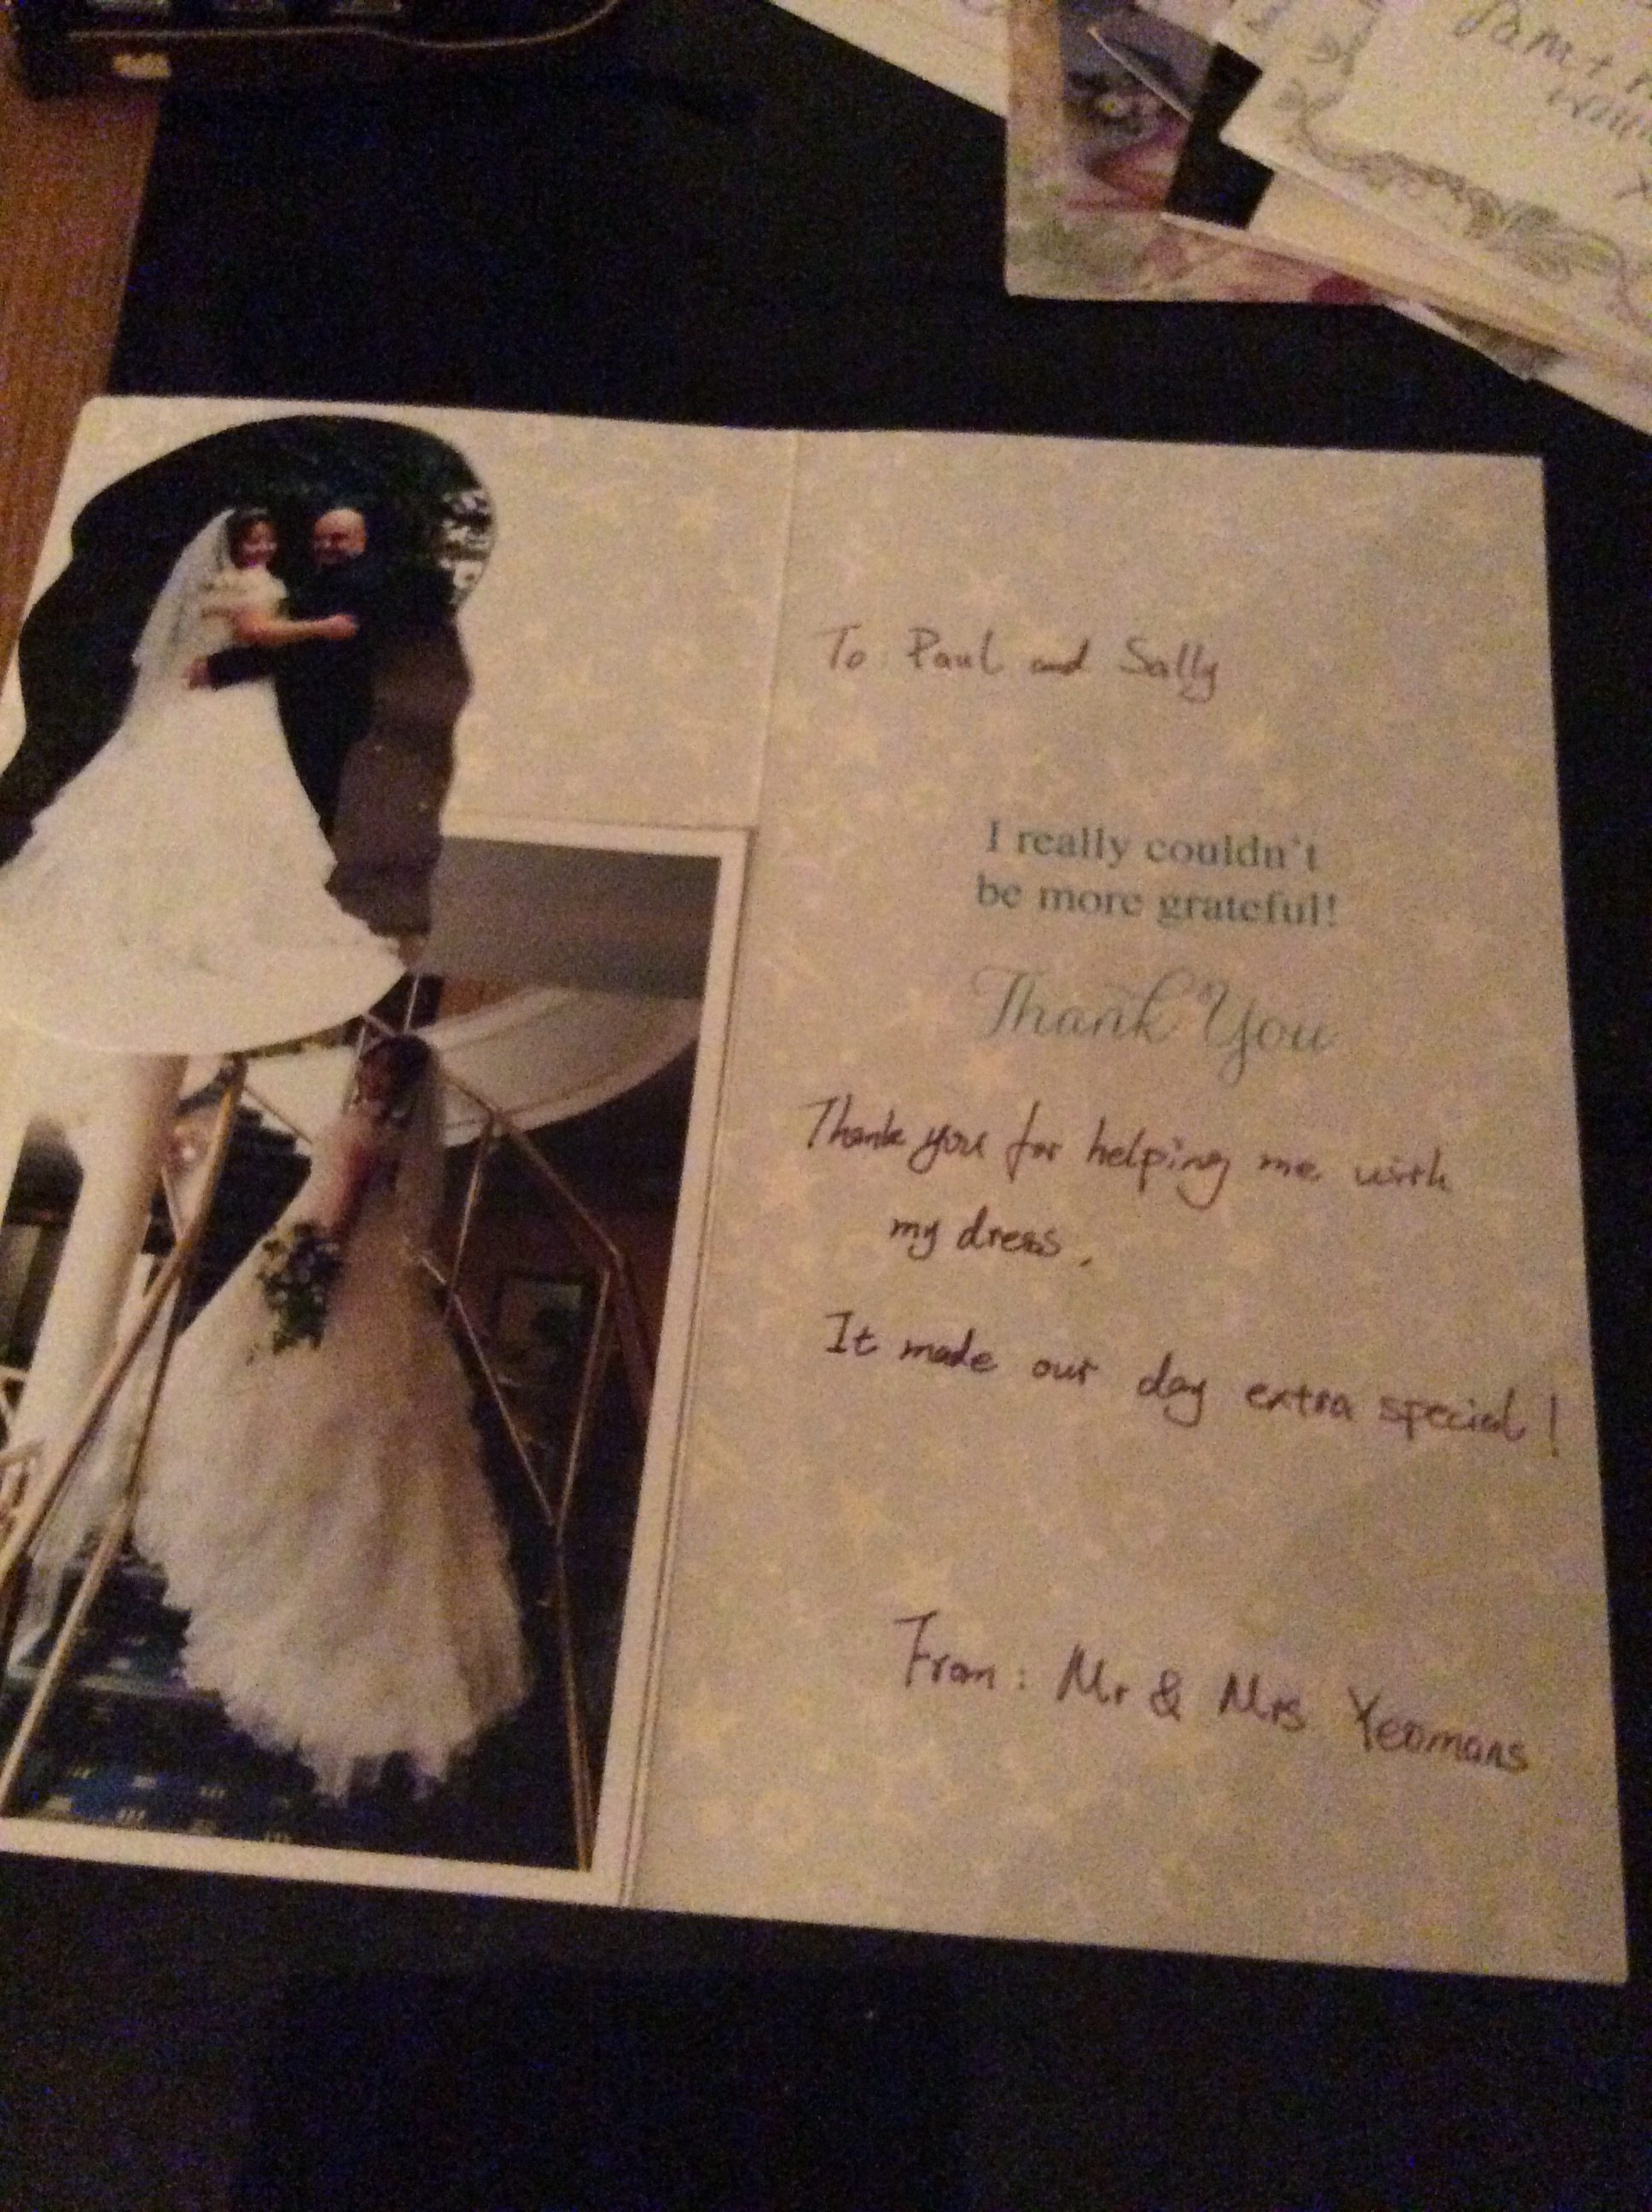 To: Paul and Sally
I really couldn't
be more grateful!
Thank You
Thank you for helping me with
my dress.
It made our day extra special!
From: Mr & Mrs Yeomans